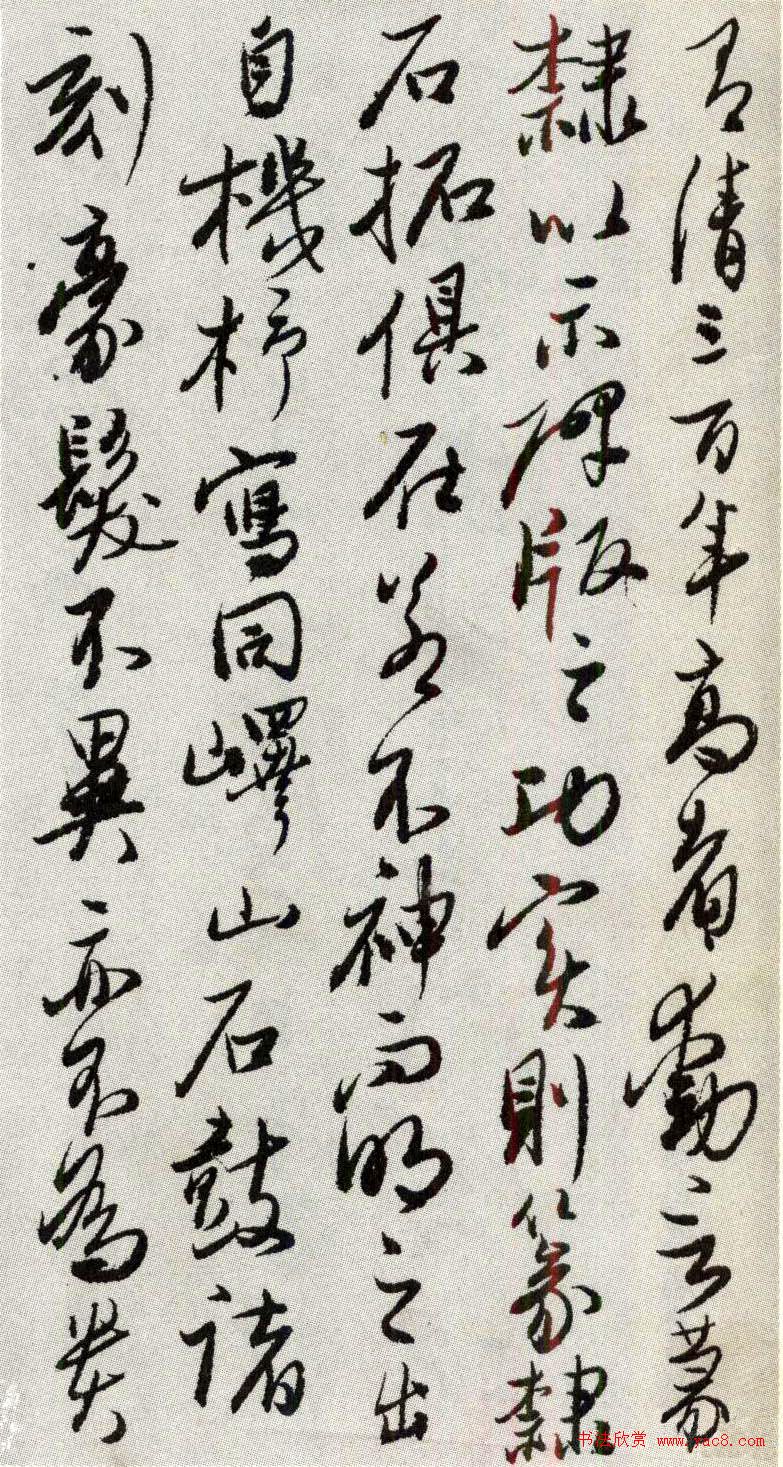 有清三百年高者動言篆
隸以示碑版之功実則篆隸
石拓俱在若不神而明之出
自機杼寫同嶧山石鼓諸
刻豪髮不異亦不為貴
书法欣赏 www.yac8.com